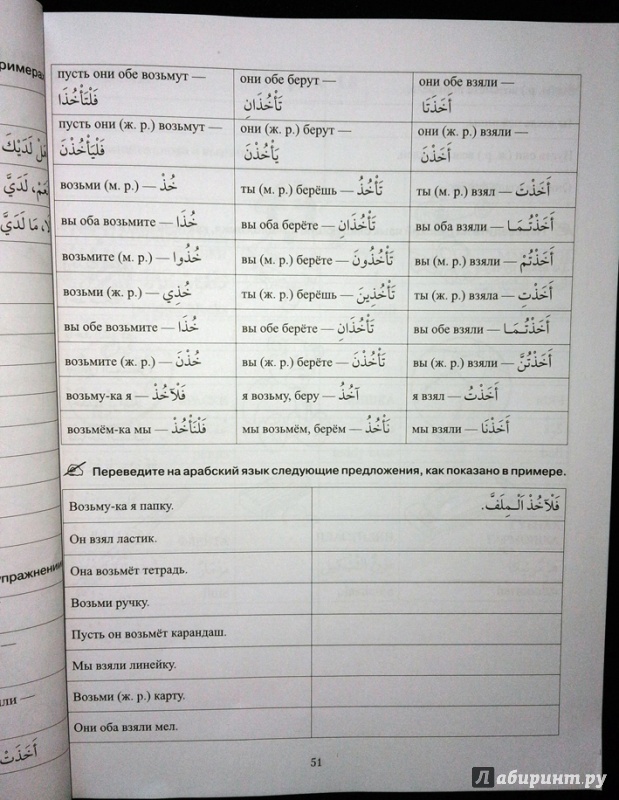 пусть они обе возьмут — فَلْتَأْخُذَا
они обе берут — تَأْخُذَانِ
они обе взяли — أَخَذَتَا
пусть они (ж. р.) возьмут — فَلْيَأْخُذْنَ
они (ж. р.) берут — يَأْخُذْنَ
они (ж. р.) взяли — أَخَذْنَ
возьми (м. р.) — خُذْ
ты (м. р.) берёшь — تَأْخُذُ
ты (м. р.) взял — أَخَذْتَ
вы оба возьмите — خُذَا
вы оба берёте — تَأْخُذَانِ
вы оба взяли — أَخَذْتُـمَـا
возьмите (м. р.) — خُذُوا
вы (м. р.) берёте — تَأْخُذُونَ
вы (м. р.) взяли — أَخَذْتُمْ
возьми (ж. р.) — خُذِي
ты (ж. р.) берёшь — تَأْخُذِينَ
ты (ж. р.) взяла — أَخَذْتِ
вы обе возьмите — خُذَا
вы обе берёте — تَأْخُذَانِ
вы обе взяли — أَخَذْتُـمَـا
возьмите (ж. р.) — خُذْنَ
вы (ж. р.) берёте — تَأْخُذْنَ
вы (ж. р.) взяли — أَخَذْتُنَّ
возьму-ка я — فَلْآخُذْ
я возьму, беру — آخُذُ
я взял — أَخَذْتُ
возьмём-ка мы — فَلْنَأْخُذْ
мы возьмём, берём — نَأْخُذُ
мы взяли — أَخَذْنَا
Переведите на арабский язык следующие предложения, как показано в примере.
Возьму-ка я папку.
فَلْآخُذْ الْـمِلَفَّ.
Он взял ластик.
Она возьмёт тетрадь.
Возьми ручку.
Пусть он возьмёт карандаш.
Мы взяли линейку.
Возьми (ж. р.) карту.
Они оба взяли мел.
51
Лабиринт.ру